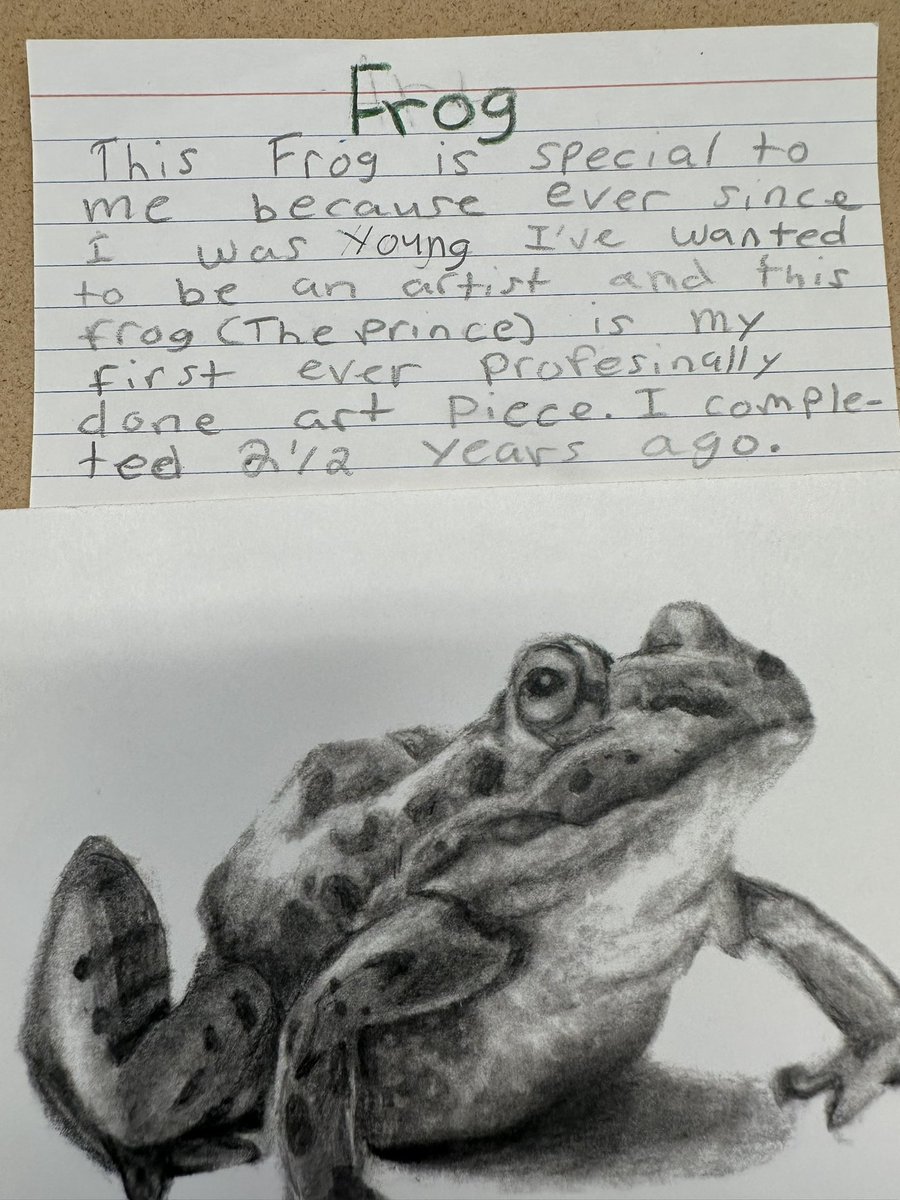 Frog
This Frog is special to
me because ever since
I was Young I've wanted
to be an artist and this
frog (The prince) is my
first ever profesinally
done art piece. I comple-
ted 2 1/2 years ago.